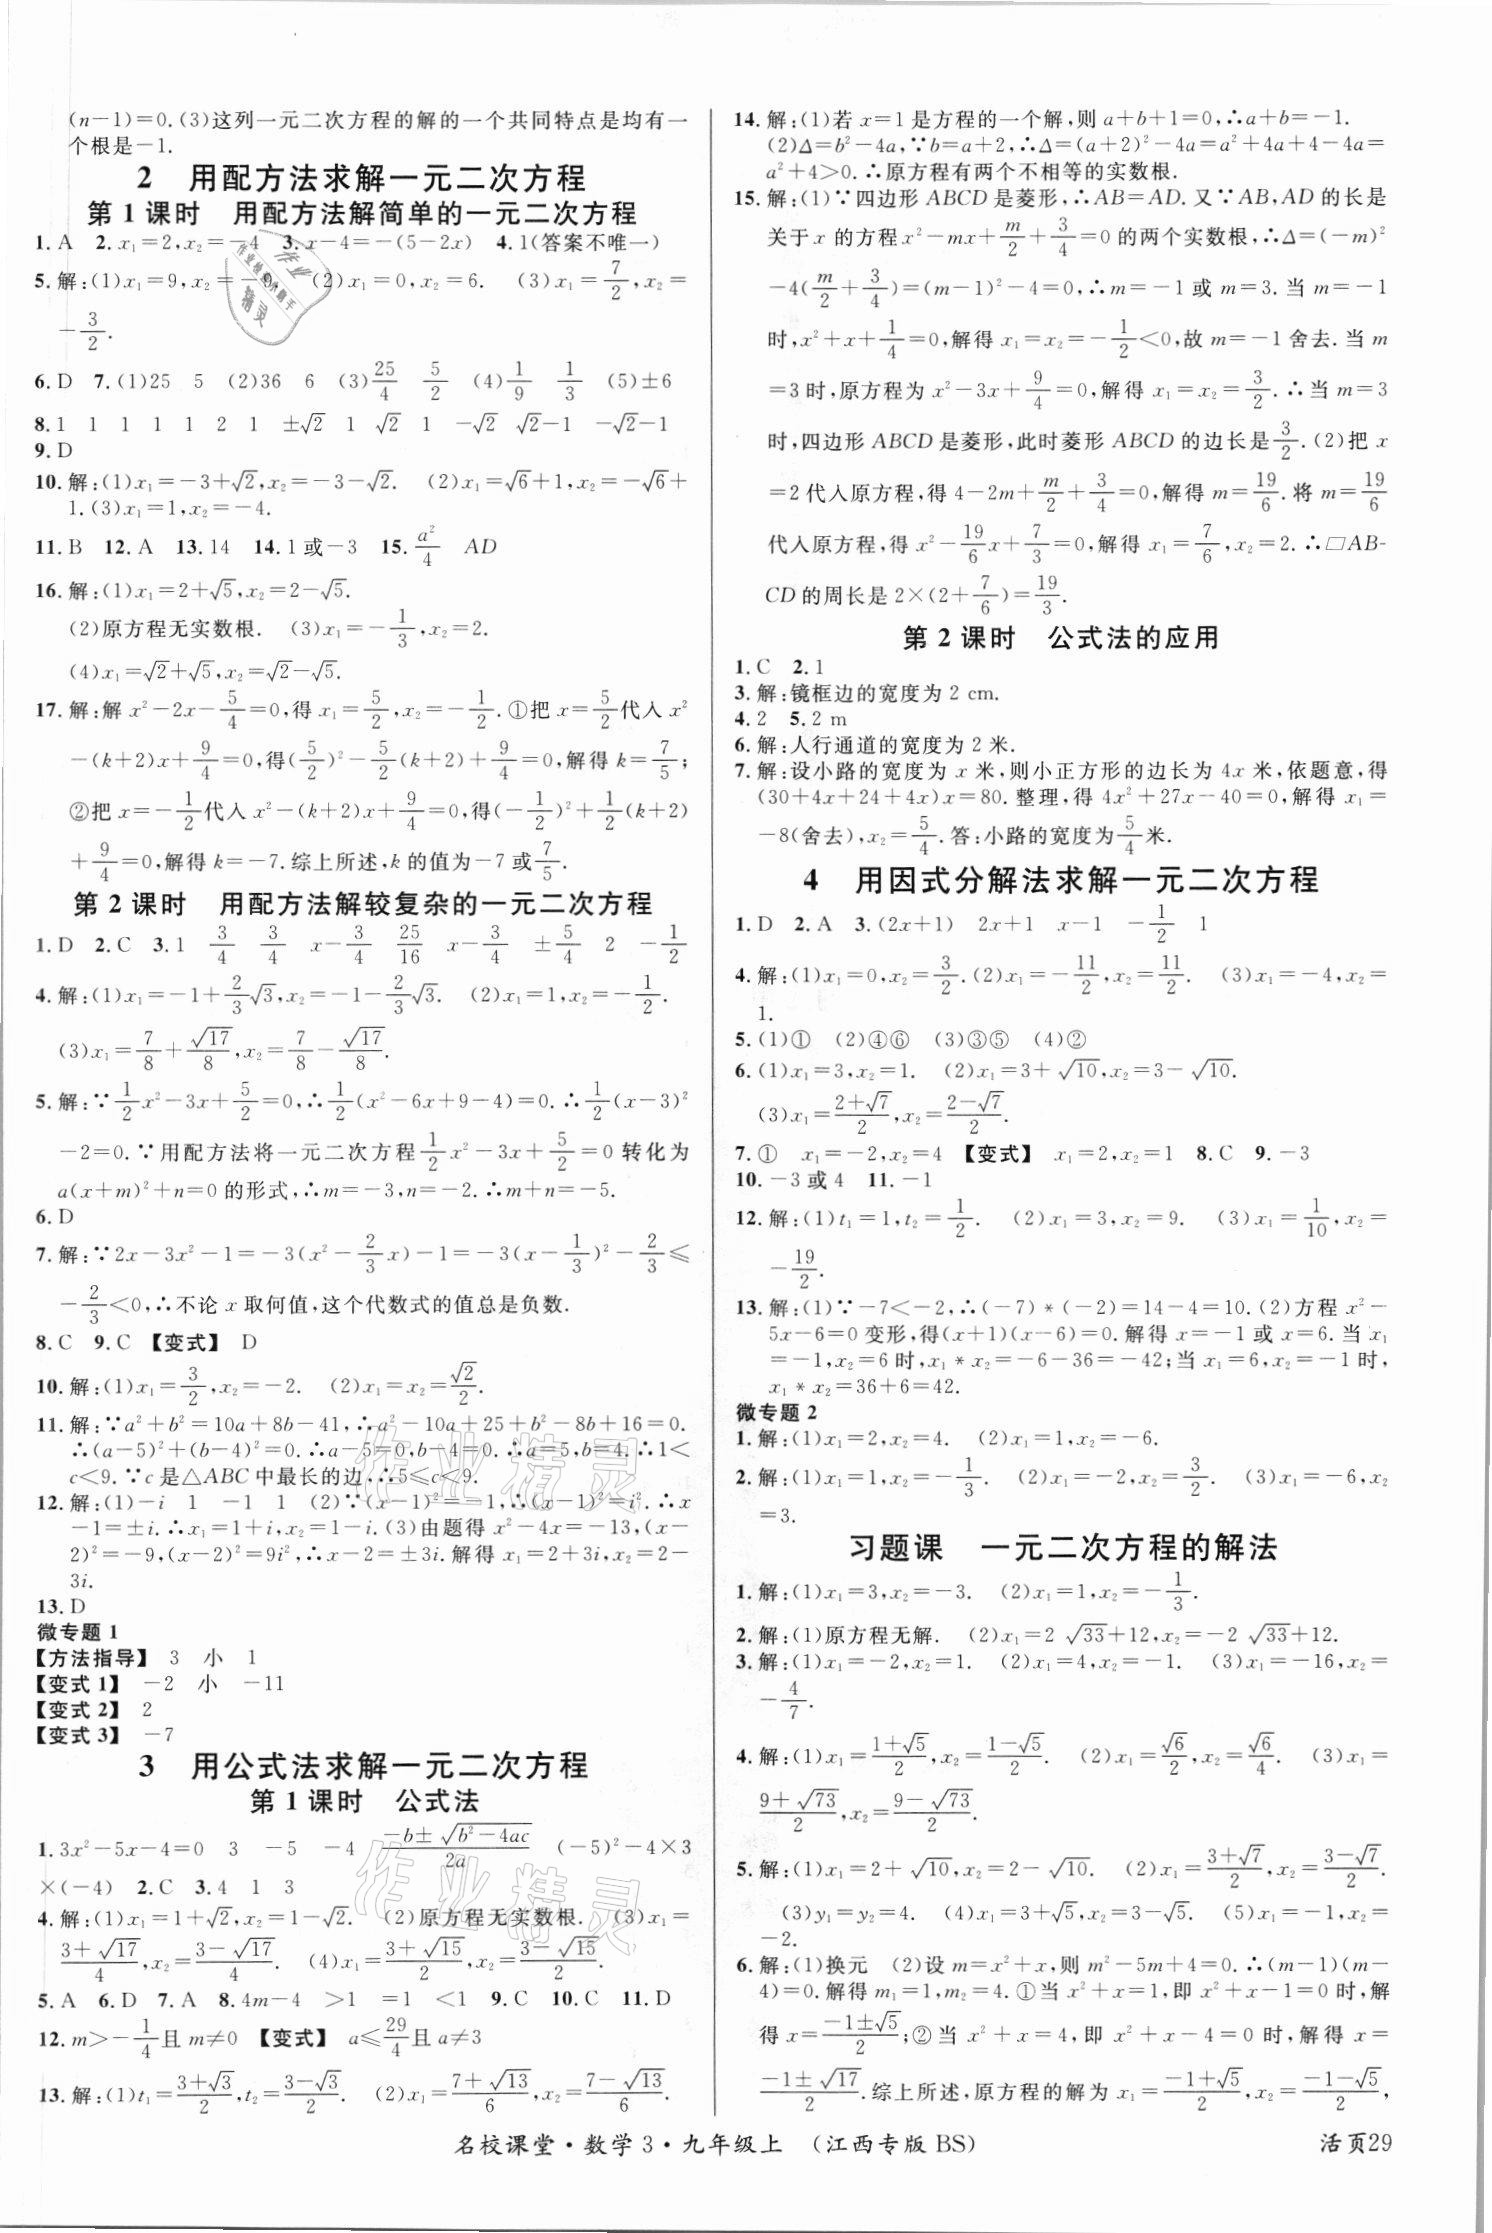 (n-1)=0.(3)这列一元二次方程的解的一个共同特点是均有一
个根是-1.
2 用配方法求解一元二次方程
第1课时 用配方法解简单的一元二次方程
1.A 2.x₁=2,x₂=-4 3.x-4=-(5-2x) 4.1(答案不唯一)
5.解:(1)x₁=9,x₂=-9. (2)x₁=0,x₂=6. (3)x₁=7/2,x₂=
-3/2.
6.D 7.(1)25 5 (2)36 6 (3)25/4 5/2 (4)1/9 1/3 (5)±6
8.1 1 1 1 1 2 1 ±√2 1 √2 1 -√2 √2-1 -√2-1
9.D
10.解:(1)x₁=-3+√2,x₂=-3-√2. (2)x₁=√6+1,x₂=-√6+
1.(3)x₁=1,x₂=-4.
11.B 12.A 13.14 14.1或-3 15.a²/4 AD
16.解:(1)x₁=2+√5,x₂=2-√5.
(2)原方程无实数根. (3)x₁=-1/3,x₂=2.
(4)x₁=√2+√5,x₂=√2-√5.
17.解:解x²-2x-5/4=0,得x₁=5/2,x₂=-1/2.①把x=5/2代入x²
-(k+2)x+9/4=0,得(5/2)²-5/2(k+2)+9/4=0,解得k=7/5;
②把x=-1/2代入x²-(k+2)x+9/4=0,得(-1/2)²+1/2(k+2)
+9/4=0,解得k=-7.综上所述,k的值为-7或7/5.
第2课时 用配方法解较复杂的一元二次方程
1.D 2.C 3.1 3/4 3/4 x-3/4 25/16 x-3/4 ±5/4 2 -1/2
4.解:(1)x₁=-1+2/3√3,x₂=-1-2/3√3. (2)x₁=1,x₂=-1/2.
(3)x₁=7/8+√17/8,x₂=7/8-√17/8.
5.解:∵1/2x²-3x+5/2=0,∴1/2(x²-6x+9-4)=0.∴1/2(x-3)²
-2=0.∵用配方法将一元二次方程1/2x²-3x+5/2=0转化为
a(x+m)²+n=0的形式,∴m=-3,n=-2.∴m+n=-5.
6.D
7.解:∵2x-3x²-1=-3(x²-2/3x)-1=-3(x-1/3)²-2/3≤
-2/3<0,∴不论x取何值,这个代数式的值总是负数.
8.C 9.C 【变式】 D
10.解:(1)x₁=3/2,x₂=-2. (2)x₁=x₂=√2/2.
11.解:∵a²+b²=10a+8b-41,∴a²-10a+25+b²-8b+16=0.
∴(a-5)²+(b-4)²=0.∴a-5=0,b-4=0.∴a=5,b=4.∴1<
c<9.∵c是△ABC中最长的边,∴5≤c<9.
12.解:(1)-i 1 -1 1 (2)∵(x-1)²=-1,∴(x-1)²=i².∴x
-1=±i.∴x₁=1+i,x₂=1-i.(3)由题得x²-4x=-13,(x-
2)²=-9,(x-2)²=9i²,∴x-2=±3i.解得x₁=2+3i,x₂=2-
3i.
13.D
微专题1
【方法指导】 3 小 1
【变式1】 -2 小 -11
【变式2】 2
【变式3】 -7
3 用公式法求解一元二次方程
第1课时 公式法
1.3x²-5x-4=0 3 -5 -4 (-b±√(b²-4ac))/2a (-5)²-4×3
×(-4) 2.C 3.4 1 3
4.解:(1)x₁=1+√2,x₂=1-√2. (2)原方程无实数根. (3)x₁=
(3+√17)/4,x₂=(3-√17)/4. (4)x₁=(3+√15)/2,x₂=(3-√15)/2.
5.A 6.D 7.A 8.4m-4 >1 =1 <1 9.C 10.C 11.D
12.m>-1/4且m≠0 【变式】 a≤29/4且a≠3
13.解:(1)t₁=(3+√3)/2,t₂=(3-√3)/2. (2)x₁=(7+√13)/6,x₂=(7-√13)/6.
14.解:(1)若x=1是方程的一个解,则a+b+1=0,∴a+b=-1.
(2)Δ=b²-4a,∵b=a+2,∴Δ=(a+2)²-4a=a²+4a+4-4a=
a²+4>0.∴原方程有两个不相等的实数根.
15.解:(1)∵四边形ABCD是菱形,∴AB=AD.又∵AB,AD的长是
关于x的方程x²-mx+m/2+3/4=0的两个实数根,∴Δ=(-m)²
-4(m/2+3/4)=(m-1)²-4=0,∴m=-1或m=3.当m=-1
时,x²+x+1/4=0,解得x₁=x₂=-1/2<0,故m=-1舍去.当m
=3时,原方程为x²-3x+9/4=0,解得x₁=x₂=3/2.∴当m=3
时,四边形ABCD是菱形,此时菱形ABCD的边长是3/2.(2)把x
=2代入原方程,得4-2m+m/2+3/4=0,解得m=19/6.将m=19/6
代入原方程,得x²-19/6x+7/3=0,解得x₁=7/6,x₂=2.∴□AB-
CD的周长是2×(2+7/6)=19/3.
第2课时 公式法的应用
1.C 2.1
3.解:镜框边的宽度为2 cm.
4.2 5.2 m
6.解:人行通道的宽度为2米.
7.解:设小路的宽度为x米,则小正方形的边长为4x米,依题意,得
(30+4x+24+4x)x=80.整理,得4x²+27x-40=0,解得x₁=
-8(舍去),x₂=5/4.答:小路的宽度为5/4米.
4 用因式分解法求解一元二次方程
1.D 2.A 3.(2x+1) 2x+1 x-1 -1/2 1
4.解:(1)x₁=0,x₂=3/2.(2)x₁=-11/2,x₂=11/2. (3)x₁=-4,x₂=
1.
5.(1)① (2)④⑥ (3)③⑤ (4)②
6.(1)x₁=3,x₂=1. (2)x₁=3+√10,x₂=3-√10.
(3)x₁=(2+√7)/2,x₂=(2-√7)/2.
7.① x₁=-2,x₂=4 【变式】 x₁=2,x₂=1 8.C 9.-3
10.-3或4 11.-1
12.解:(1)t₁=1,t₂=1/2. (2)x₁=3,x₂=9. (3)x₁=1/10,x₂=
-19/2.
13.解:(1)∵-7<-2,∴(-7)*(-2)=14-4=10.(2)方程x²-
5x-6=0变形,得(x+1)(x-6)=0.解得x=-1或x=6.当x₁
=-1,x₂=6时,x₁*x₂=-6-36=-42;当x₁=6,x₂=-1时,
x₁*x₂=36+6=42.
微专题2
1.解:(1)x₁=2,x₂=4. (2)x₁=1,x₂=-6.
2.解:(1)x₁=1,x₂=-1/3. (2)x₁=-2,x₂=3/2. (3)x₁=-6,x₂
=3.
习题课 一元二次方程的解法
1.解:(1)x₁=3,x₂=-3. (2)x₁=1,x₂=-1/3.
2.解:(1)原方程无解. (2)x₁=2√33+12,x₂=-2√33+12.
3.解:(1)x₁=-2,x₂=1. (2)x₁=4,x₂=-1. (3)x₁=-16,x₂=
-4/7.
4.解:(1)x₁=(1+√5)/2,x₂=(1-√5)/2. (2)x₁=√6/2,x₂=√6/4. (3)x₁=
(9+√73)/2,x₂=(9-√73)/2.
5.解:(1)x₁=2+√10,x₂=2-√10. (2)x₁=(3+√7)/2,x₂=(3-√7)/2.
(3)y₁=y₂=4. (4)x₁=3+√5,x₂=3-√5. (5)x₁=-1,x₂=
-2.
6.解:(1)换元 (2)设m=x²+x,则m²-5m+4=0.∴(m-1)(m-
4)=0.解得m₁=1,m₂=4.①当x²+x=1,即x²+x-1=0时,解
得x=(-1±√5)/2;②当x²+x=4,即x²+x-4=0时,解得x=
(-1±√17)/2.综上所述,原方程的解为x₁=(-1+√5)/2,x₂=(-1-√5)/2,
名校课堂·数学3·九年级上 (江西专版BS) 活页29
作业精灵
作业精灵